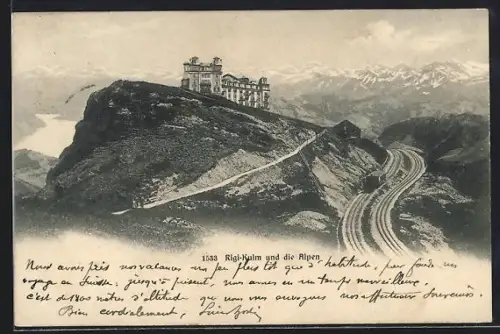 1533 Rigi-Kulm und die Alpen
Nous avons pris nos vacances un peu plus tôt que d'habitude, pour faire un
voyage en Suisse; jusqu'à présent, nous avons eu un temps merveilleux,
c'est de 1800 mètres d'altitude que nous vous envoyons nos affectueux souvenirs.
Bien cordialement,